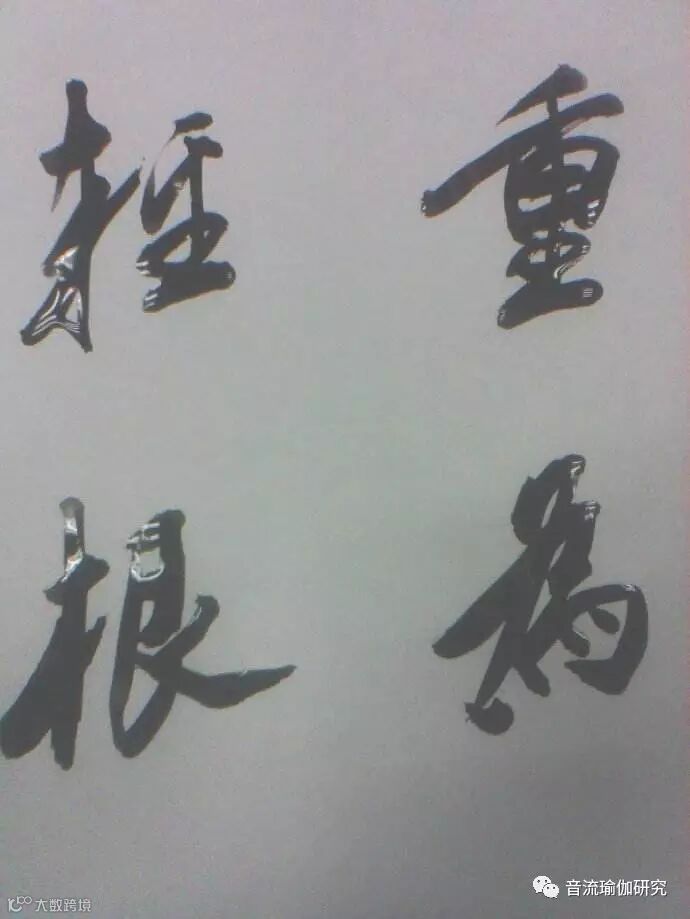 重為
輕根
音流瑜伽研究
大数跨境